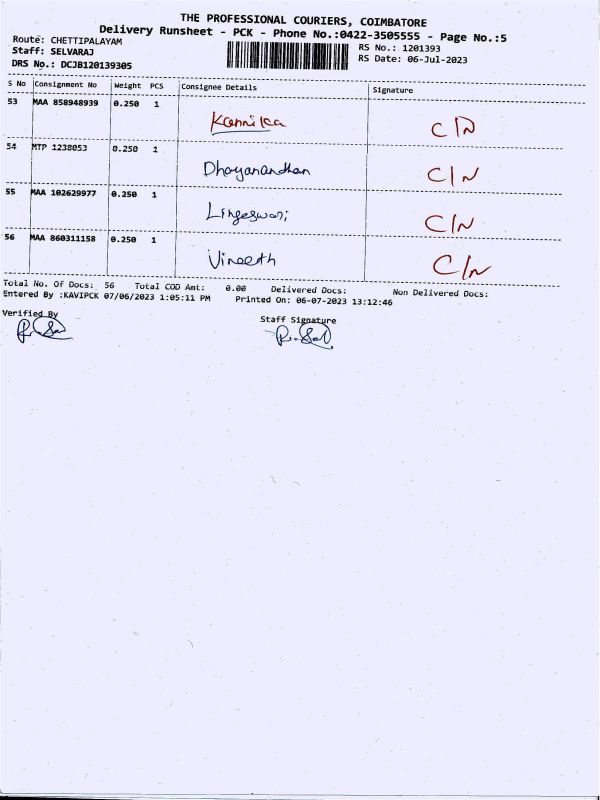 THE PROFESSIONAL COURIERS, COIMBATORE
Delivery Runsheet - PCK - Phone No.:0422-3505555 - Page No.:5
Route: CHETTIPALAYAM
Staff: SELVARAJ
DRS No.: DCJB120139305
RS No.: 1201393
RS Date: 06-Jul-2023
S No Consignment No Weight PCS Consignee Details Signature
53 MAA 858948939 0.250 1 Kannika C/N
54 MTP 1238053 0.250 1 Dhayanandhan C/N
55 MAA 102629977 0.250 1 Lingeswari C/N
56 MAA 860311158 0.250 1 Vineeth C/N
Total No. Of Docs: 56 Total COD Amt: 0.00 Delivered Docs: Non Delivered Docs:
Entered By :KAVIPCK 07/06/2023 1:05:11 PM Printed On: 06-07-2023 13:12:46
Verified By
Staff Signature